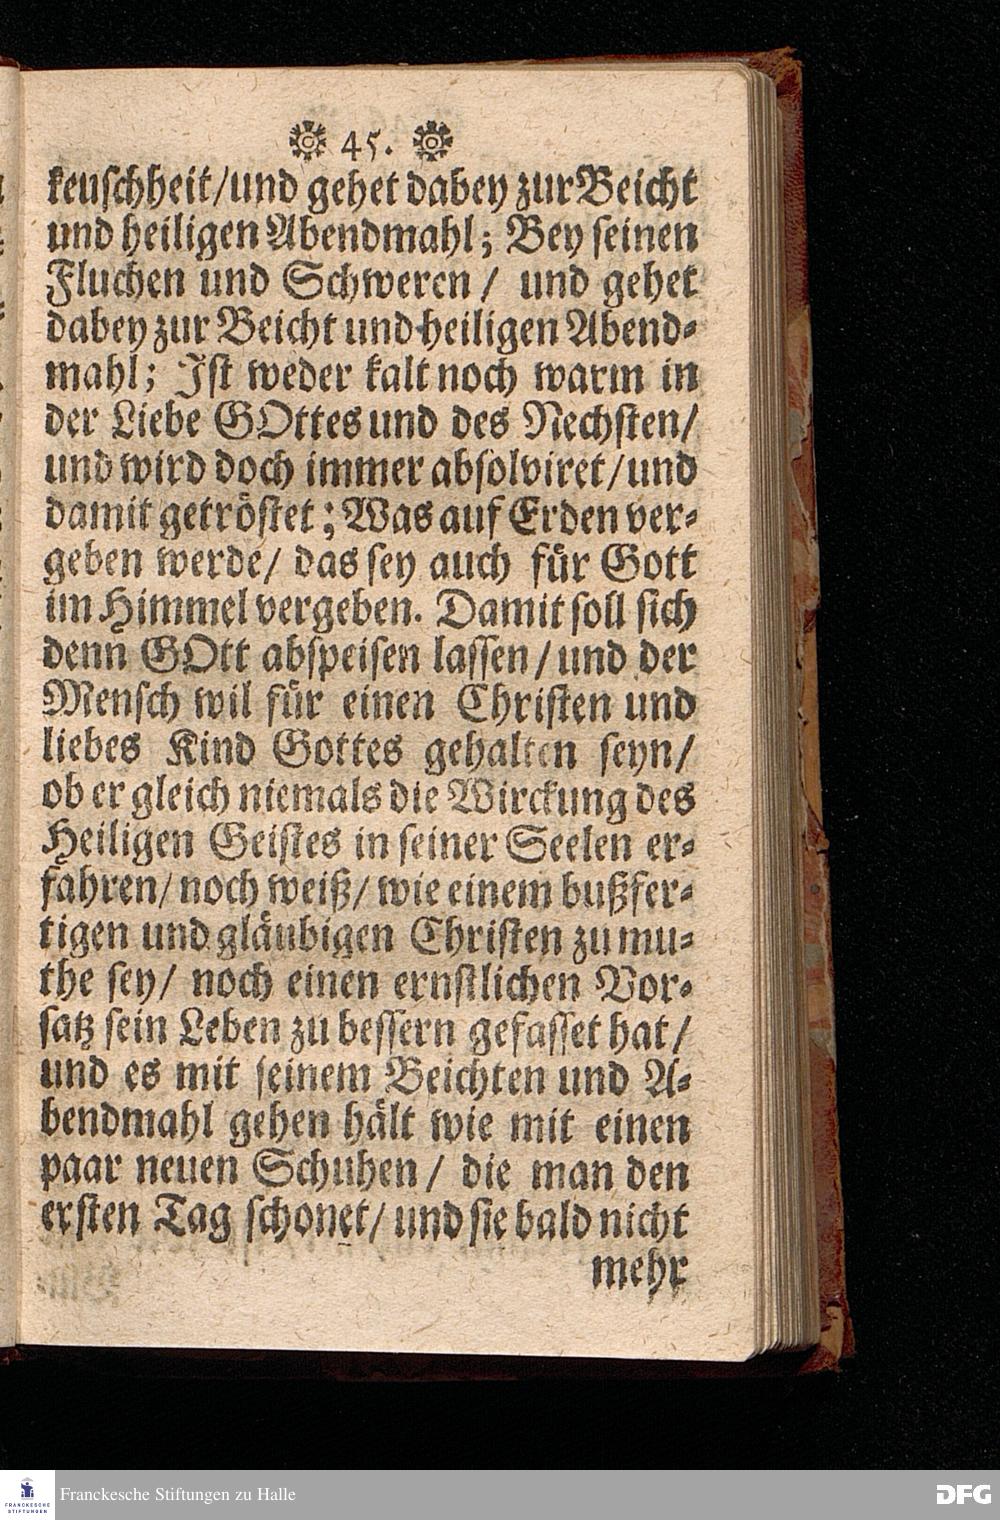 45.
keuschheit/und gehet dabey zur Beicht
und heiligen Abendmahl; Bey seinen
Fluchen und Schweren/ und gehet
dabey zur Beicht und heiligen Abend-
mahl; Ist weder kalt noch warm in
der Liebe GOttes und des Nechsten/
und wird doch immer absolviret/und
damit getröstet; Was auf Erden ver-
geben werde/ das sey auch für Gott
im Himmel vergeben. Damit soll sich
denn GOtt abspeisen lassen/und der
Mensch wil für einen Christen und
liebes Kind Gottes gehalten seyn/
ob er gleich niemals die Wirckung des
Heiligen Geistes in seiner Seelen er-
fahren/noch weiß/wie einem bußfer-
tigen und gläubigen Christen zu mu-
the sey/ noch einen ernstlichen Vor-
satz sein Leben zu bessern gefasset hat/
und es mit seinem Beichten und A-
bendmahl gehen hält wie mit einen
paar neuen Schuhen/ die man den
ersten Tag schonet/und sie bald nicht
mehr
FRANCKESCHE
STIFTUNGEN
Franckesche Stiftungen zu Halle
DFG